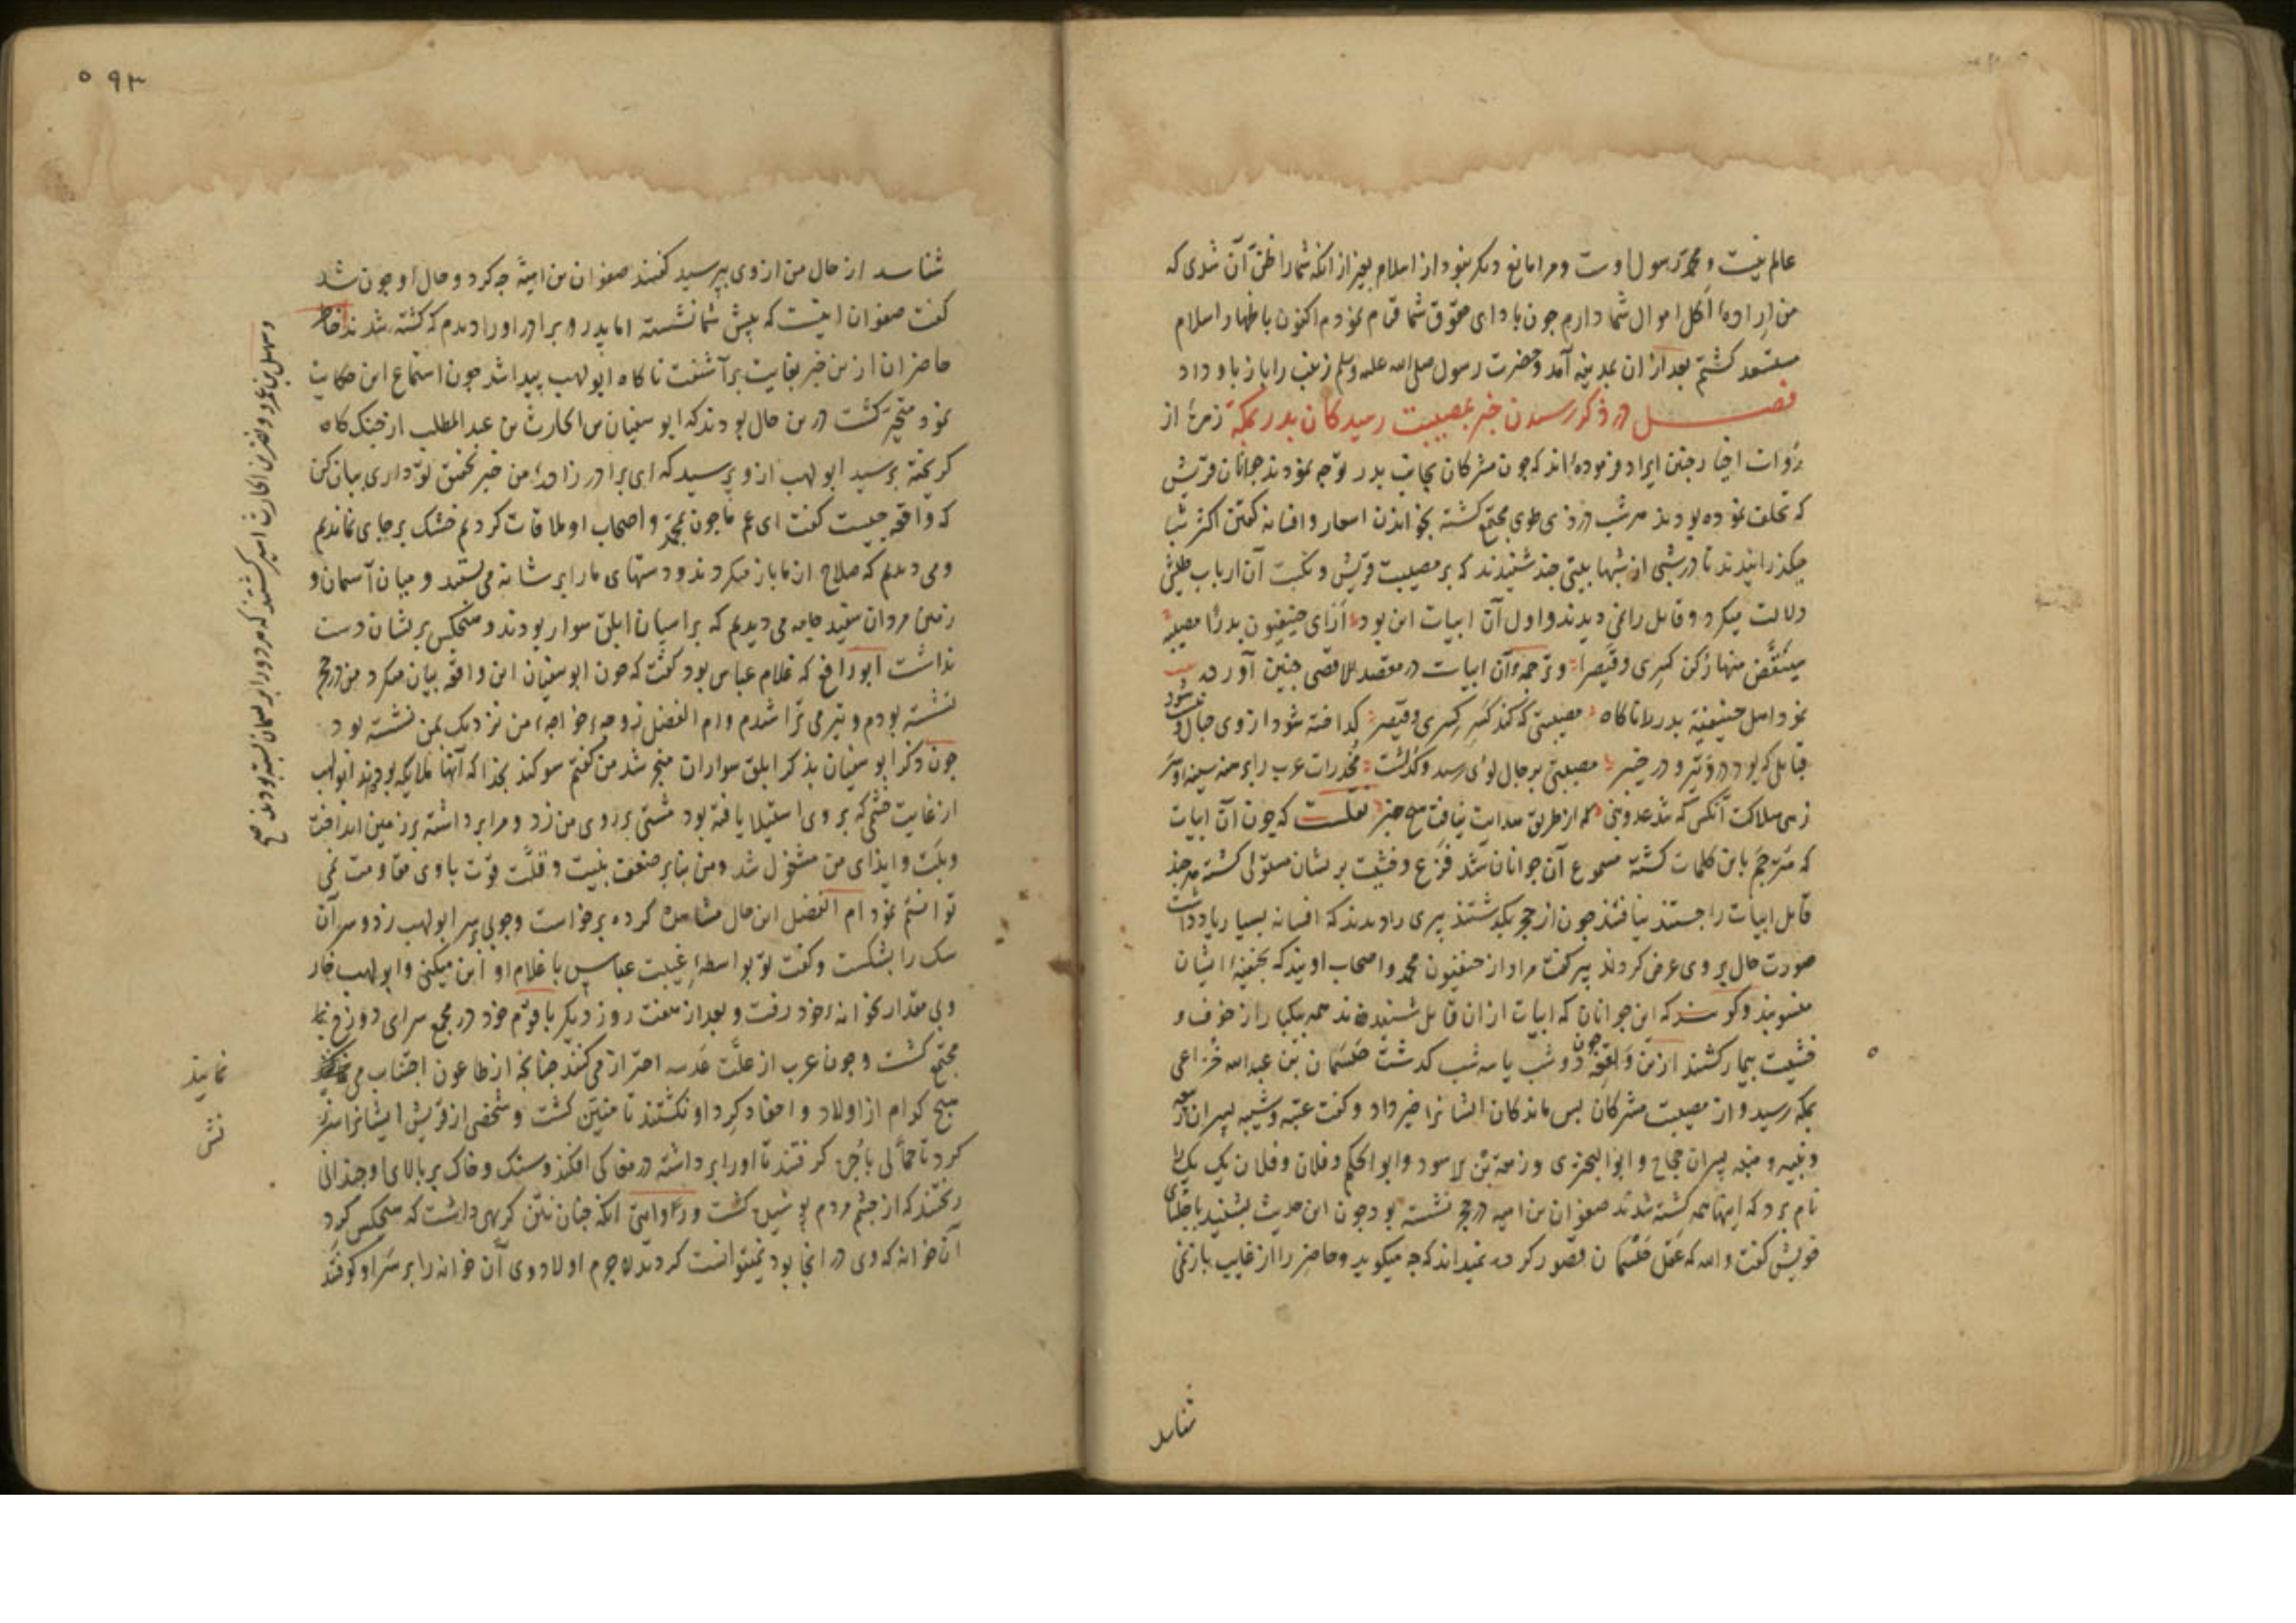 عالم نیست و محمد رسول اوست و مرا مانع دیکر نبود از اسلام بغیر از انکه شما را ظن آن شدی که
من اراده اکل اموال شما دارم چون بادای حقوق شما قیام نمودم اکنون باظهار اسلام
مستسعد کشتم بعد از ان بمدینه آمد و حضرت رسول صلی الله علیه وسلم زینب را باز باو داد
فصل در ذکر رسیدن خبر مصیبت رسیدکان بدر بمکه زمرهٔ از
روات اخبار چنین ایراد فرموده‌اند که چون مشرکان بجانب بدر توجه نمودند جوانان قریش
که تخلف نموده بودند هر شب در ذی طوی مجتمع کشته بخواندن اسمار و افسانه کفتن اکثر شب
میکذرانیدند تا در شبی از شبها بیتی چند شنیدند که بر مصیبت قریش و نکبت آن ارباب طیش
دلالت میکرد و قایل را نمی دیدند و اول آن ابیات این بود ازای حنیفیون بدرا مصیبة
سینقض منها رکن کسری و قیصرا و ترجمهٔ آن ابیات در مقصد للاقصی چنین آورده
نمود اهل حنیفیة بدر را ناکاه مصیبتی که کند کسر کسری و قیصر کداخته شود از وی جبال و
قبایل که بود در وتیر و در خیبر مصیبتی برجال لوی رسید و کذشت مخدرات عرب را برهنه سینه و سر
زهی هلاکت آنکس که شد عدو نبی که از طریق هدایت نیافت هیچ خبر نقلست که چون آن ابیات
که مترجم باین کلمات کشته مسموع آن جوانان شد فزع و خشیت بر یشان مستولی کشته هر چند
قایل ابیات را جستند نیافتند چون از حجر بکذشتند پیری را دیدند که افسانه بسیار یاد داشت
صورت حال بر وی عرض کردند پیر کفت مراد از حنیفیون محمد و اصحاب اویند که بحنیفیه ایشان
منسوبند و کویند که این جوانان که ابیات از ان قایل شنیده‌اند همه بیکبار از خوف و
خشیت بیمار کشتند ازین واقعه چون دو شب یا سه شب کدشت حیسمان بن عبدالله خزاعی
بمکه رسید و از مصیبت مشرکان پس ماندکان ایشانرا خبر داد و کفت عتبه و شیبه پسران ربیعه
و نبیه و منبه پسران حجاج و ابوالبختری و زمعة بن لاسود و ابو الحکم و فلان و فلان یک یک را
نام برد که اینها همه کشته شدند صفوان بن امیه در حجر نشسته بود چون این حدیث بشنید با جلسای
خویش کفت والله که عقل حیسمان قصور کرده نمیداند که چه میکوید و حاضر را از غایب باز نمی
شناسد
۵۹۳
شناسد از حال من از وی بپرسید کفتند صفوان بن امیة چه کرد و حال او چون شد
کفت صفوان اینست که پیش شما نشسته اما پدر و برادر او را دیدم که کشته شدند خاطر
حاضران ازین خبر بغایت برآشفت ناکاه ابولهب پیدا شد چون استماع این حکایت
نمود متحیر کشت درین حال بودند که ابو سفیان بن الحارث بن عبد المطلب از جنک کاه
کریخته برسید ابولهب ازو پرسید که ای برادر زاده من خبر تحقیق تو داری بیان کن
که واقعه چیست کفت ای عم ما چون بمحمد و اصحاب او ملاقات کردیم خشک برجای نماندیم
و می دیدیم که صلاح از ما باز میکردند و دستهای ما را بر شانه می بستند و میان آسمان و
زمین مردان سفید جامه می دیدیم که بر اسپان ابلق سوار بودند و هیچکس بریشان دست
نداشت ابو رافع که غلام عباس بود کفت که چون ابو سفیان این واقعه بیان میکرد من در حجر
نشسته بودم و تیر می تراشدم و ام الفضل زوجهٔ خواجهٔ من نزدیک بمن نشسته بود
چون ذکر ابو سفیان بذکر ابلق سواران منجر شد من کفتم سوکند بخدا که آنها ملایکه بودند ابولهب
از غایت خشمی که بر وی استیلا یافته بود مشتی بر روی من زد و مرا برداشته بر زمین انداخت
و بلت و ایذای من مشغول شد و من بنابر ضعف بنیت و قلت قوت با وی مقاومت نمی
توانستم نمود ام الفضل این حال مشاهده کرده برخواست و چوبی بر سر ابولهب زد و سر آن
سک را بشکست و کفت تو بواسطهٔ غیبت عباس با غلام او این میکنی و ابولهب خوار
و بی مقدار بخوانه خود رفت و بعد از هفت روز دیکر با قوم خود در مجمع سرای دوزخ
مجتمع کشت و چون عرب از علت عدسه احتراز می کنند چنانچه از طاعون اجتناب می نمایند
هیچ کدام از اولاد و احفاد کرد او نکشتند تا منتن کشت و شخصی از قریش ایشانرا سرزنش
کرد تا حمالی باجر کرفتند تا او را برداشته در مغاکی افکند و سنک و خاک بر بالای او چندانی
ریختند که از چشم مردم پوشیده کشت و روایتی انکه چنان نتن کریهی داشت که هیچکس کرد
آن خوانه که وی در انجا بود نمیتوانست کردید لاجرم اولاد وی آن خوانه را بر سر او کوفتند
و سهیل بن عمرو و نضر بن الحارث اسیر کشتند که هر دو را بریسمان بسته بودند صح
نمایند
نش